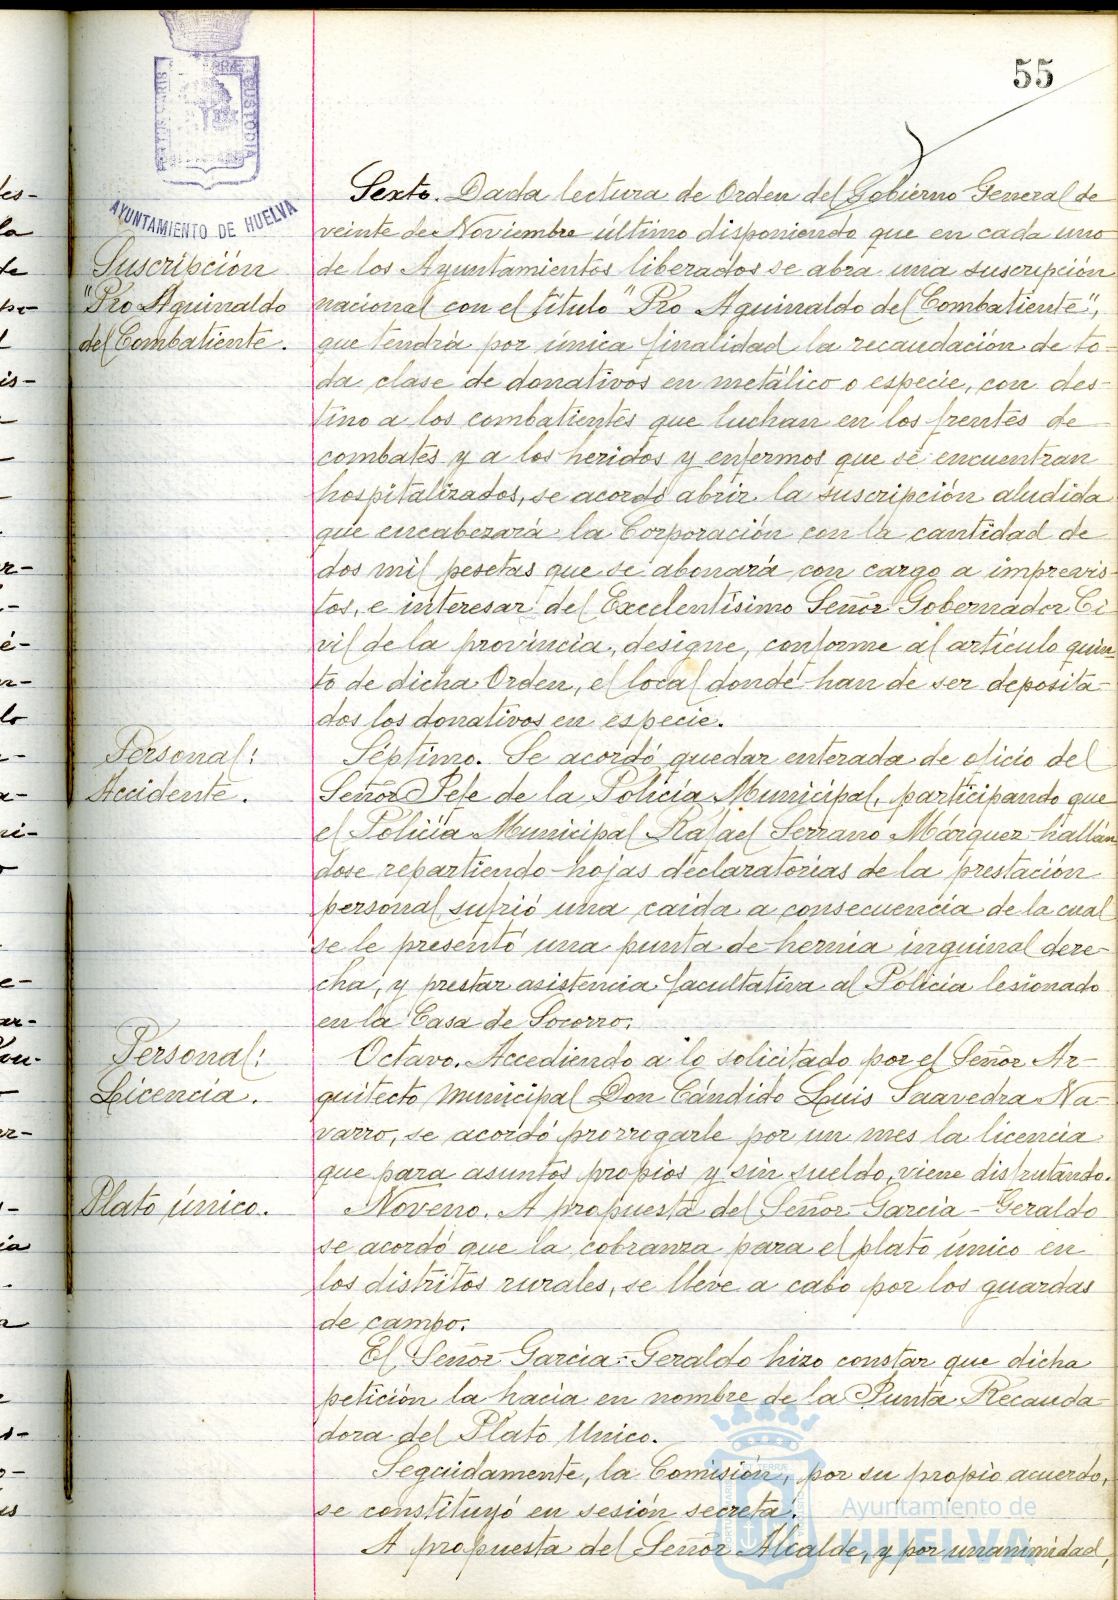 55
PORTUS MARIS ET TERRÆ CUSTODIA
AYUNTAMIENTO DE HUELVA
Suscripción
"Pro Aguinaldo
del Combatiente.
Sexto. Dada lectura de Orden del Gobierno General de
veinte de Noviembre último disponiendo que en cada uno
de los Ayuntamientos liberados se abra una suscripción
nacional con el título "Pro Aguinaldo del Combatiente",
que tendrá por única finalidad la recaudación de to-
da clase de donativos en metálico o especie, con des-
tino a los combatientes que luchan en los frentes de
combates y a los heridos y enfermos que se encuentran
hospitalizados, se acordó abrir la suscripción aludida
que encabezará la Corporación con la cantidad de
dos mil pesetas que se abonará con cargo a imprevis-
tos, e interesar del Excelentísimo Señor Gobernador Ci
vil de la provincia, designe, conforme al artículo quin
to de dicha Orden, el local donde han de ser deposita-
dos los donativos en especie.
Personal:
Accidente.
Séptimo. Se acordó quedar enterada de oficio del
Señor Jefe de la Policía Municipal, participando que
el Policía Municipal Rafael Serrano Márquez hallán
dose repartiendo hojas declaratorias de la prestación
personal, sufrió una caida a consecuencia de la cual
se le presentó una punta de hernia inguinal dere-
cha, y prestar asistencia facultativa al Policía lesionado
en la Casa de Socorro.
Personal:
Licencia.
Octavo. Accediendo a lo solicitado por el Señor Ar-
quitecto municipal Don Cándido Luis Saavedra Na-
varro, se acordó prorrogarle por un mes la licencia
que para asuntos propios y sin sueldo, viene disfrutando.
Plato único.
Noveno. A propuesta del Señor García-Geraldo
se acordó que la cobranza para el plato único en
los distritos rurales, se lleve a cabo por los guardas
de campo.
El Señor García-Geraldo hizo constar que dicha
petición la hacía en nombre de la Junta Recauda-
dora del Plato Unico.
Seguidamente, la Comisión, por su propio acuerdo,
se constituyó en sesión secreta.
A propuesta del Señor Alcalde, y por unanimidad,
Ayuntamiento de
HUELVA